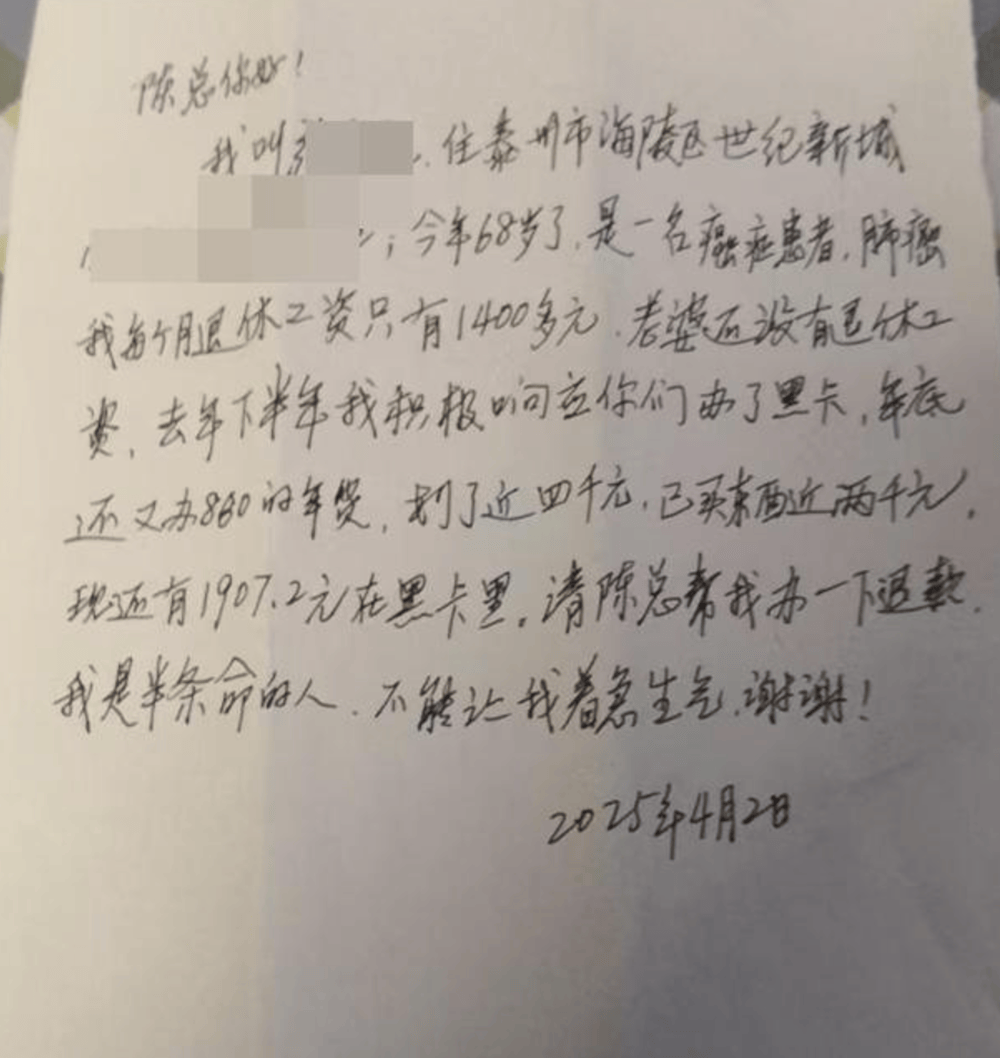 陈总你好!
我叫 住泰州市海陵区世纪新城
,今年68岁了,是一名癌症患者,肺癌
我每个月退休工资只有1400多元.老婆还没有退休工
资,去年下半年我积极响应你们办了黑卡,年底
还又办860的年货,划了近四千元,已买东西近两千元,
现还有1907.2元在黑卡里,请陈总帮我办一下退款.
我是半条命的人.不能让我着急生气.谢谢!
2025年4月2日